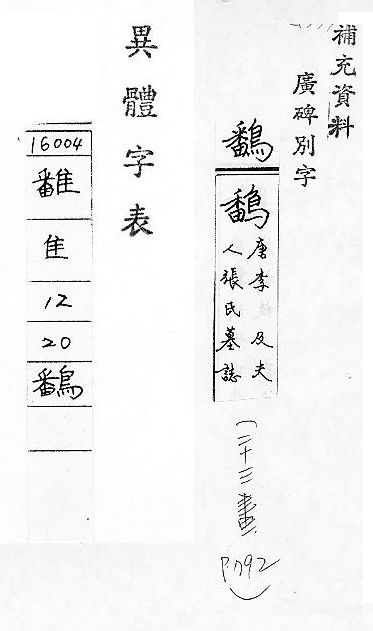 補充資料
廣碑別字
鷭
唐李及夫
人張氏墓誌
(二十三畫
P792)
異體字表
16004
隹
12
20
鷭